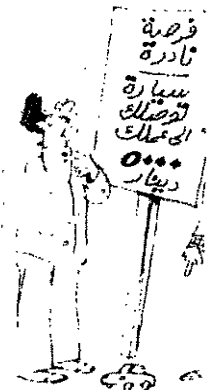 فرصة
نادرة
سيارة
توصلك
الى عملك
٥٠٠٠
دينار